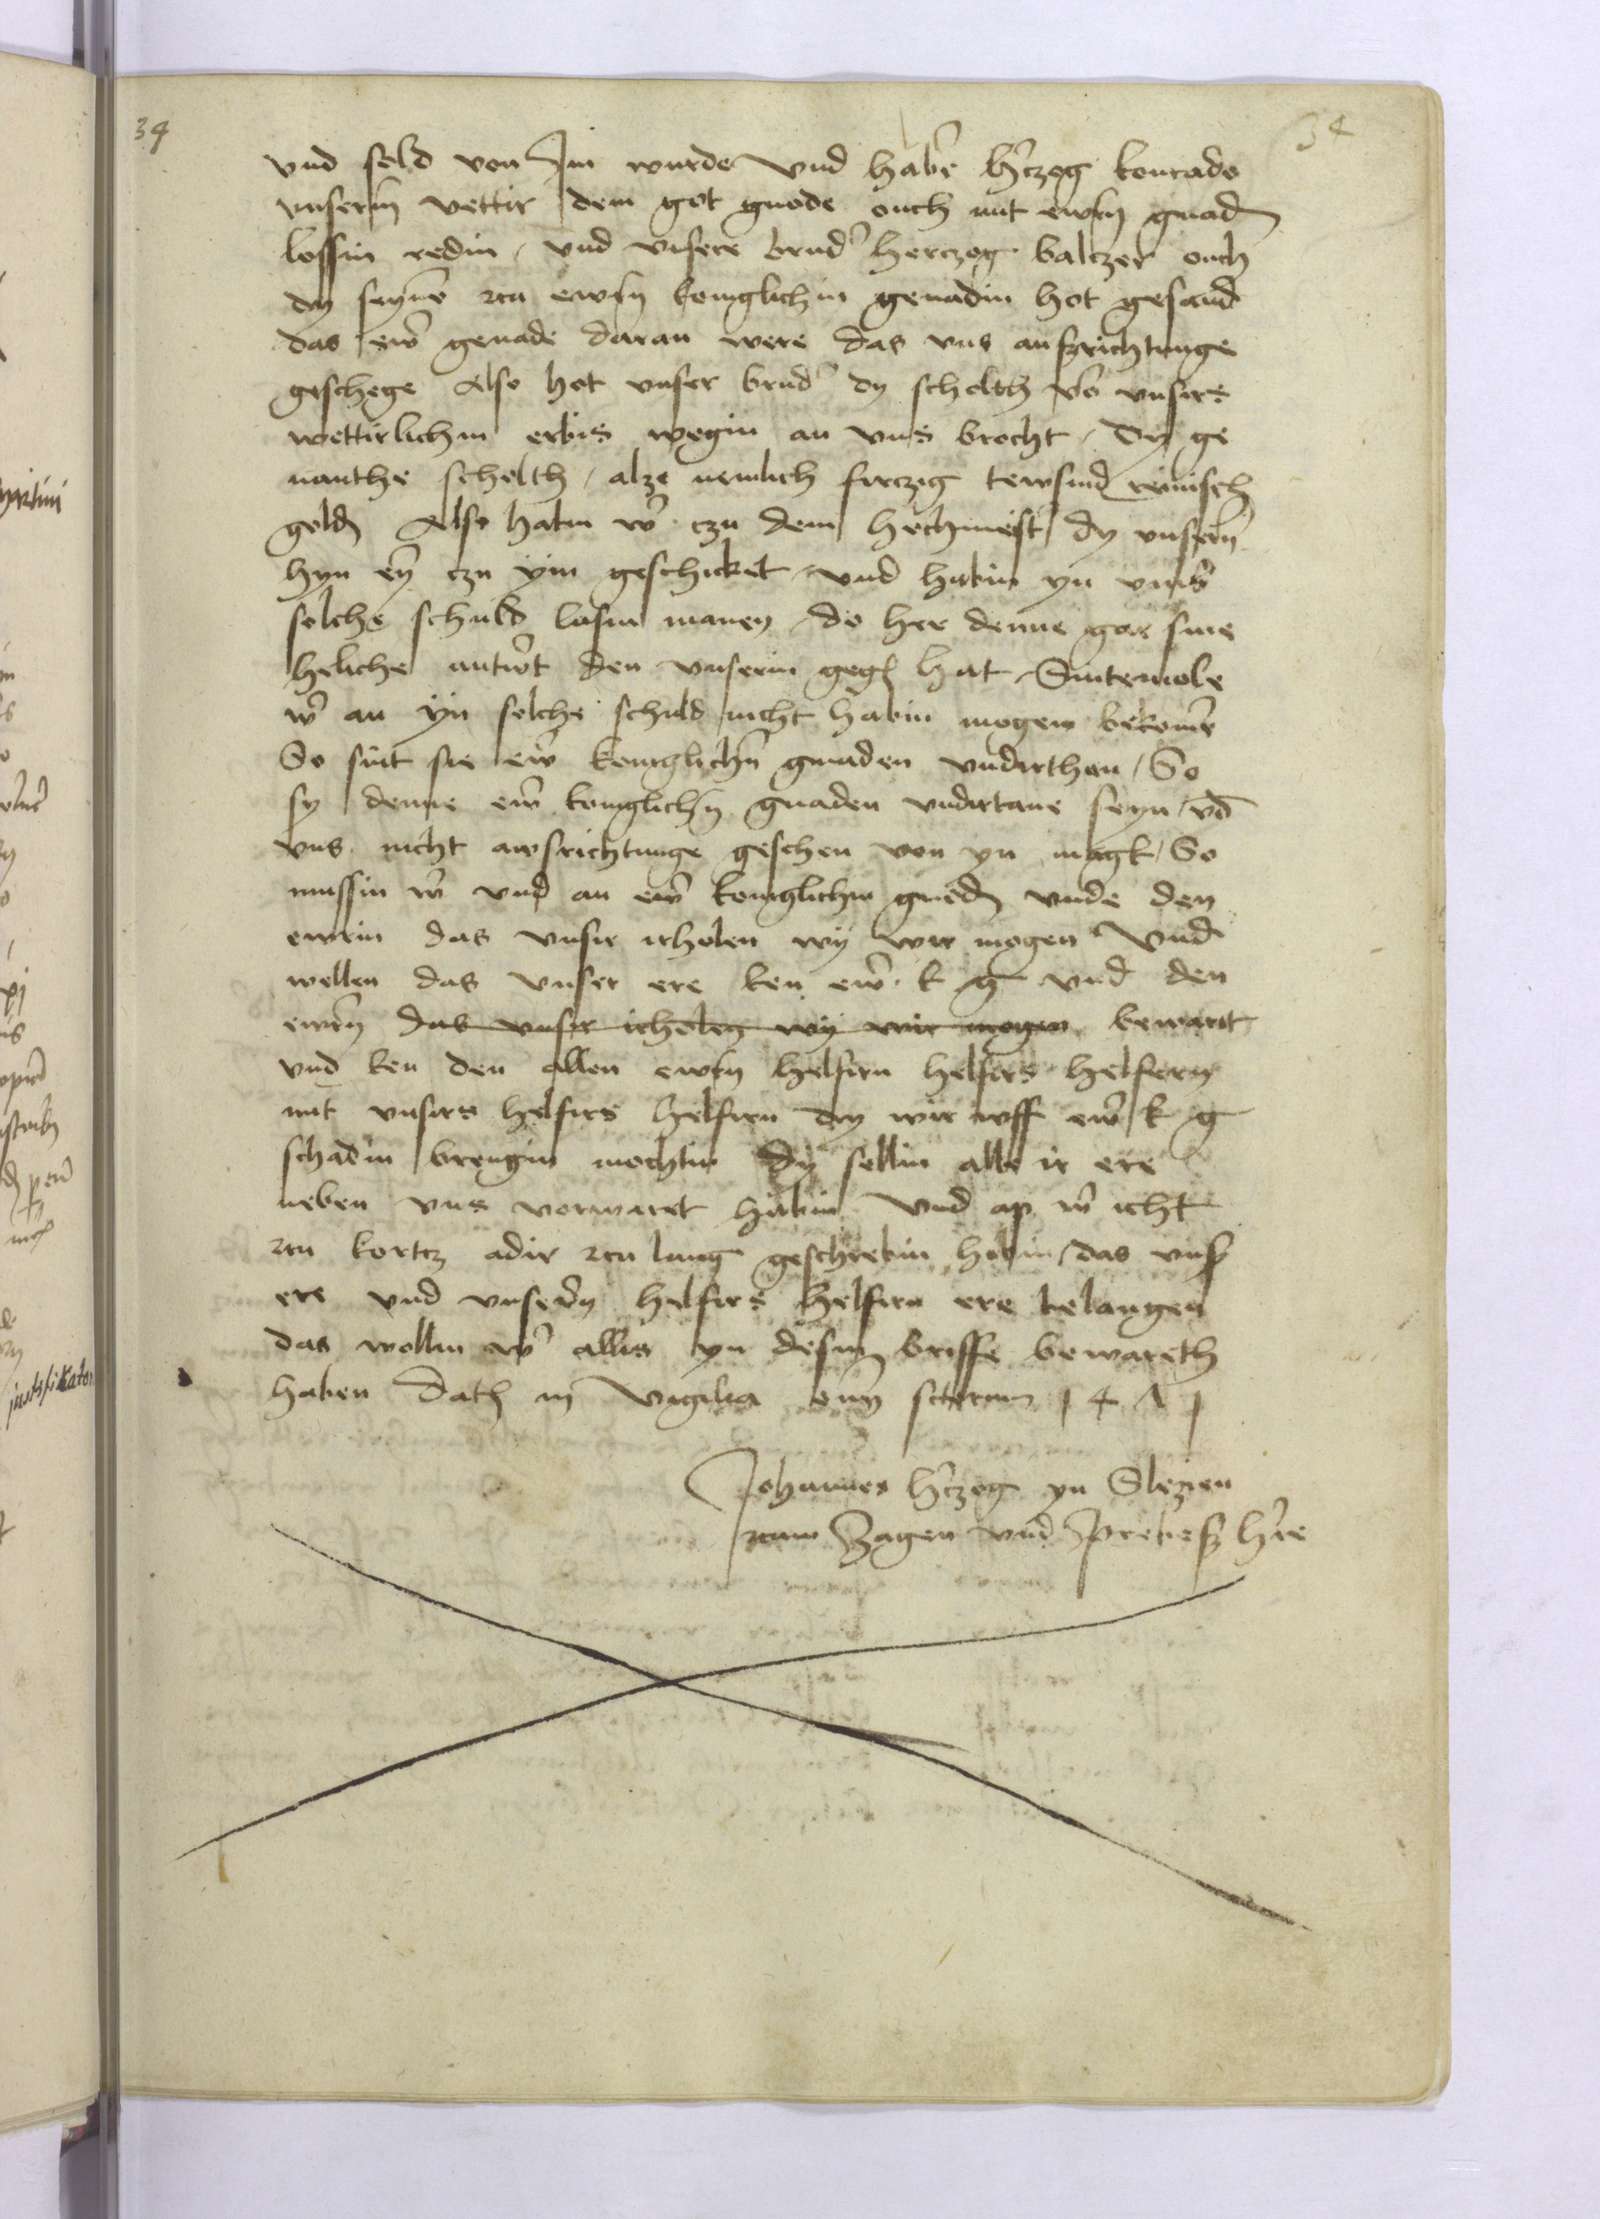 34
34
vnd sold von Im wurde Vnd habe hẽczog konrado
vnserm vettir dem got gnode ouch mit ewrn gnad
lossin redin / vnd vnsere brud herczog balczer ouch
dy seyne czu ewrn koniglichin genadin hot gesand
das ew genade daran were das vns auszrichtunge
geschege Also hot vnser brud dy scholth vo vnsers
vettirlichin erbis wegin an vns brocht / Dy ge
nanthe scholth / alze nemlich firczig tewsind reinisch
gold Also habin w czu dem hochmest dy vnsern
hyn eyn czu ym geschicket / vnd habin yn vmb
solche schuld lasin manen / do her denne gar sme
heliche antwt den vnserin geg hat / Sintemole
w an yn solche schuld nicht habin mogen bekome
So sint sie ew koniglichn gnaden vndirthan / So
sy denne ew koniglichn gnaden vndirtane seyn / vd
vns nicht awsrichtunge geschen von yn magk / So
mussin w vnd an ew koniglichin gnod vnde den
ewrin das vnsir irholen wy wir mogen Vnd
wellen das vnser ere ken ew k g vnd den
ewrn das vnsir irholen wy wir mogen bewart
vnd ken den allen ewrn helfirn helfirs helfern
mit vnsirs helfirs helfirn dy wir vff ew k g
schadin brengin mochtin dy sellin alle ir ere
neben vns vorwaret habin Vnd ap w icht
czu kortcz adir czu lang geschrebin habin / das vns
ere vnd vnsern helfirs helfirn ere belangen
das wollin w allis yn desin briffe bewareth
haben Dat in vigilia omn sctorum
Johannes hczog yn Slezien
czum Zagen vnd Prebes here